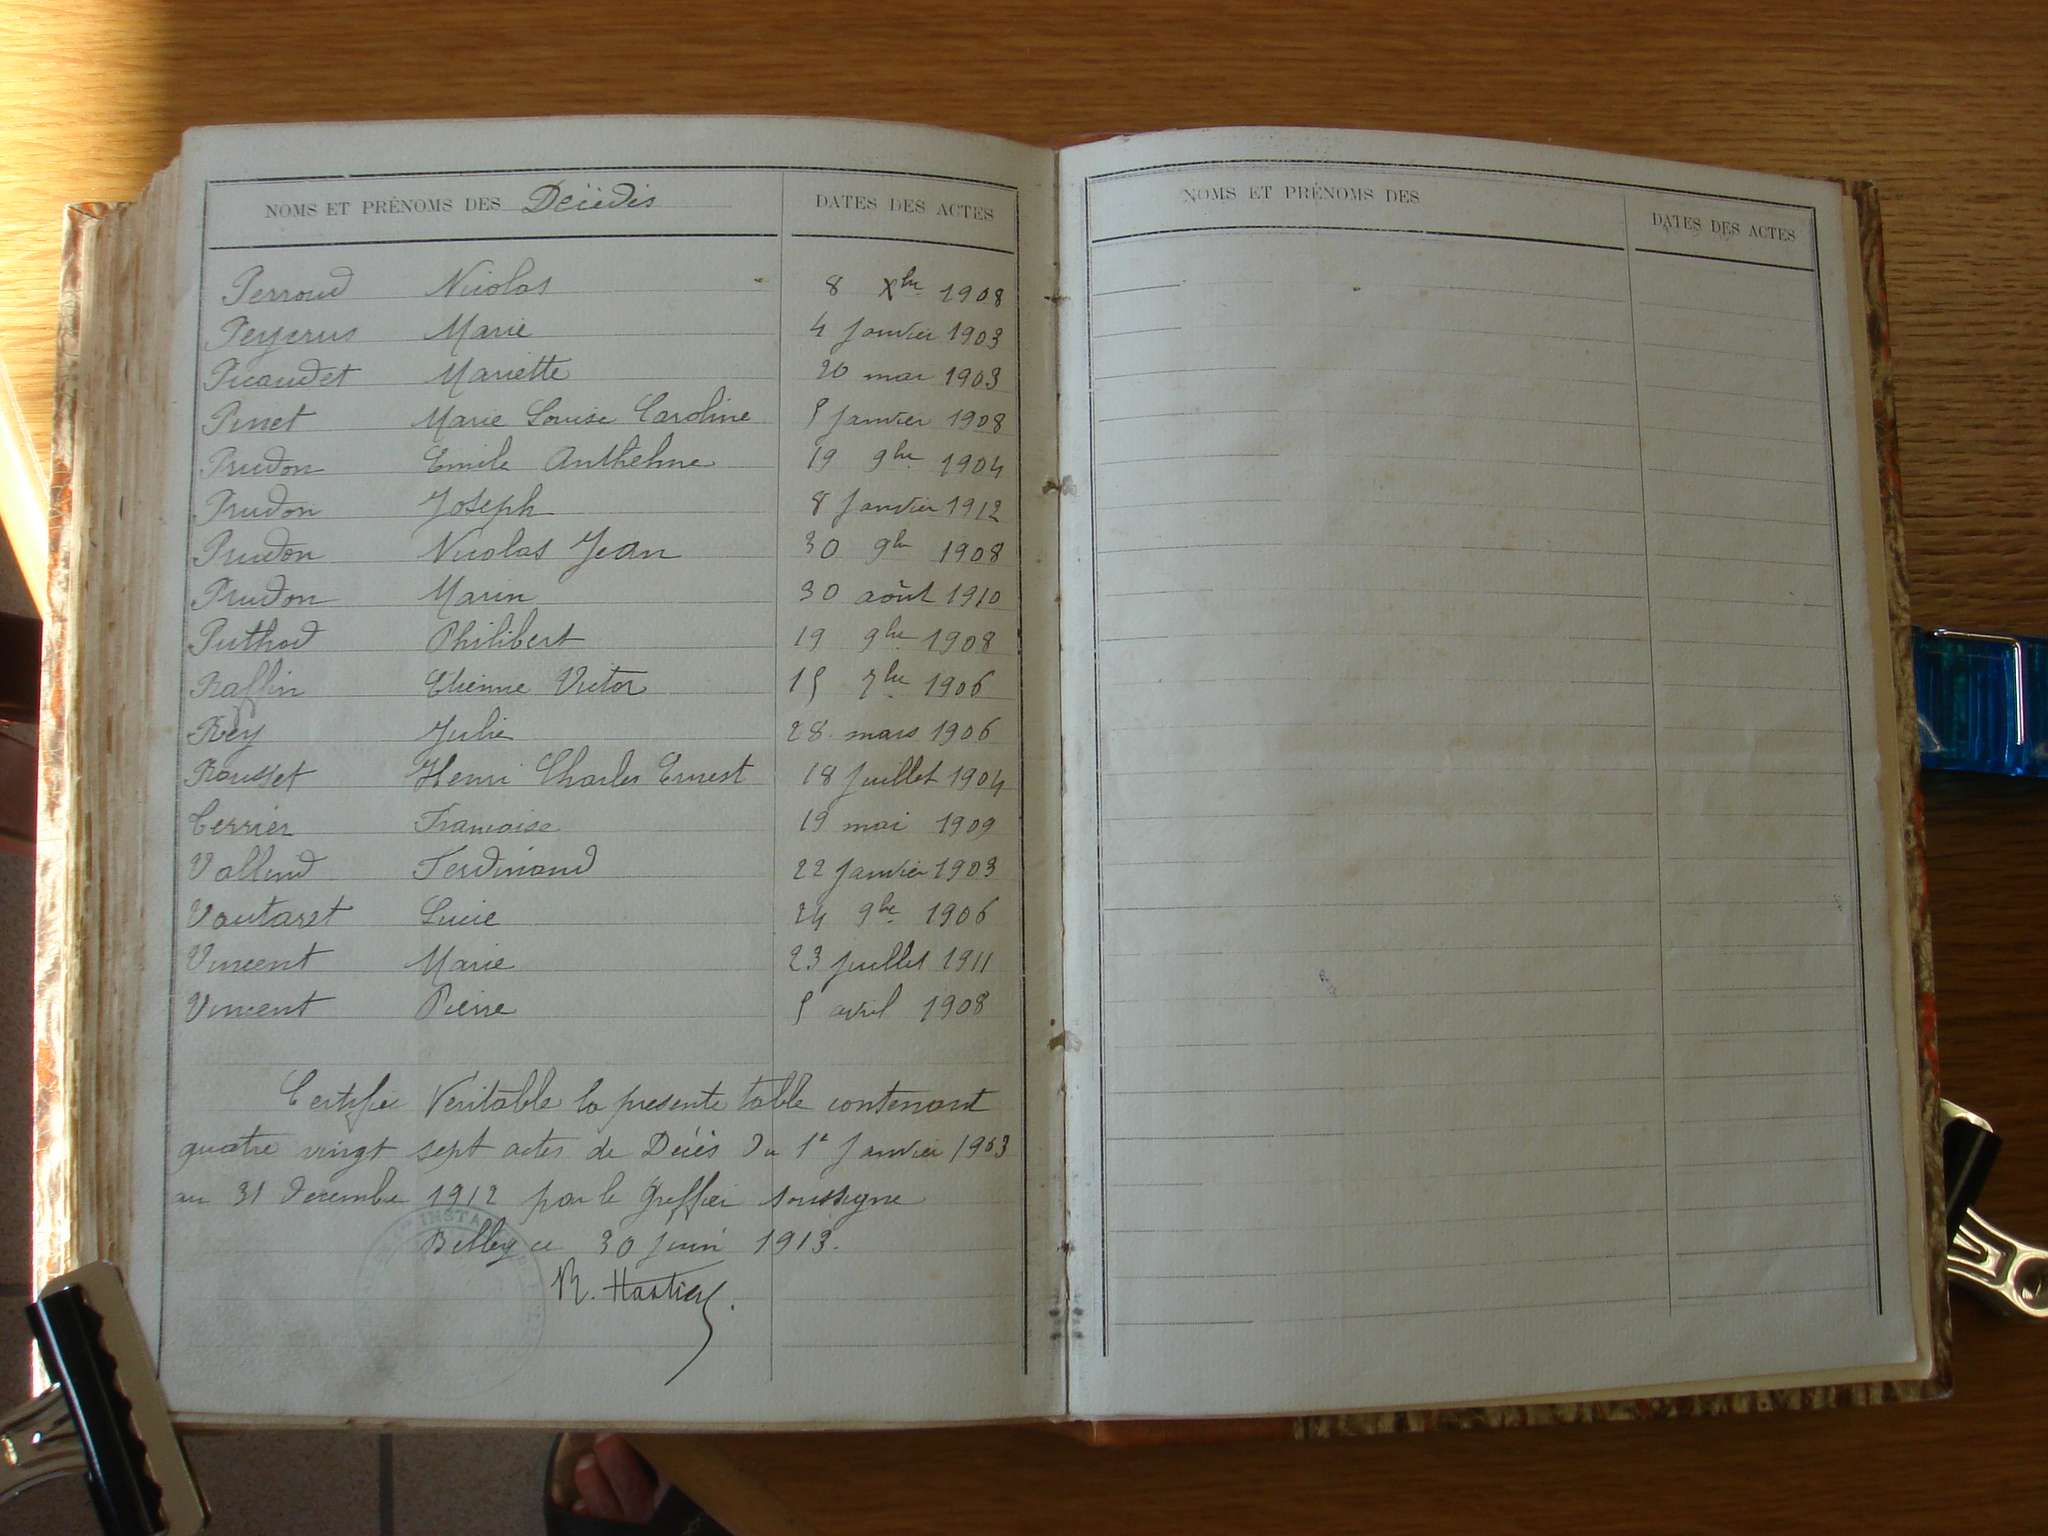 NOMS ET PRÉNOMS DES Décédés DATES DES ACTES
Perroud Nicolas 8 Xbre 1908
Peyerus Marie 4 Janvier 1903
Picaudet Mariette 20 mai 1903
Pinet Marie Louise Caroline 5 Janvier 1908
Prudon Emile Anthelme 19 9bre 1904
Prudon Joseph 8 Janvier 1912
Prudon Nicolas Jean 30 9bre 1908
Prudon Marin 30 août 1910
Puthod Philibert 19 9bre 1908
Raffin Etienne Victor 15 7bre 1906
Rey Julie 28 mars 1906
Rousset Henri Charles Ernest 18 Juillet 1904
Terrier Francoise 19 mai 1909
Vallend Ferdinand 22 Janvier 1903
Vautaret Lucie 24 9bre 1906
Vincent Marie 23 Juillet 1911
Vincent Pierre 5 avril 1908
Certifié Veritable la presente table contenant
quatre vingt sept actes de Décès du 1er Janvier 1903
au 31 decembre 1912 par le Greffier soussigné
Belley ce 30 Juin 1913.
INSTA
NOMS ET PRÉNOMS DES DATES DES ACTES